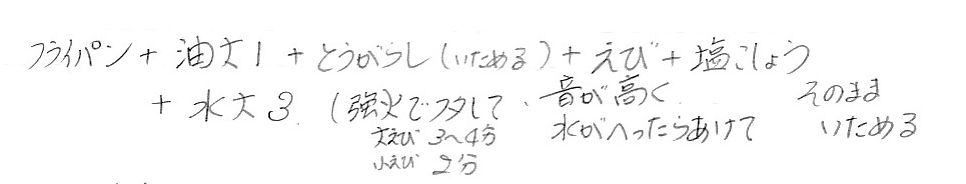 フライパン + 油大1 + とうがらし(いためる) + えび + 塩こしょう
+ 水大3 (強火でフタして、音が高く そのまま
大えび 3〜4分 水がへったらあけて いためる
小えび 2分